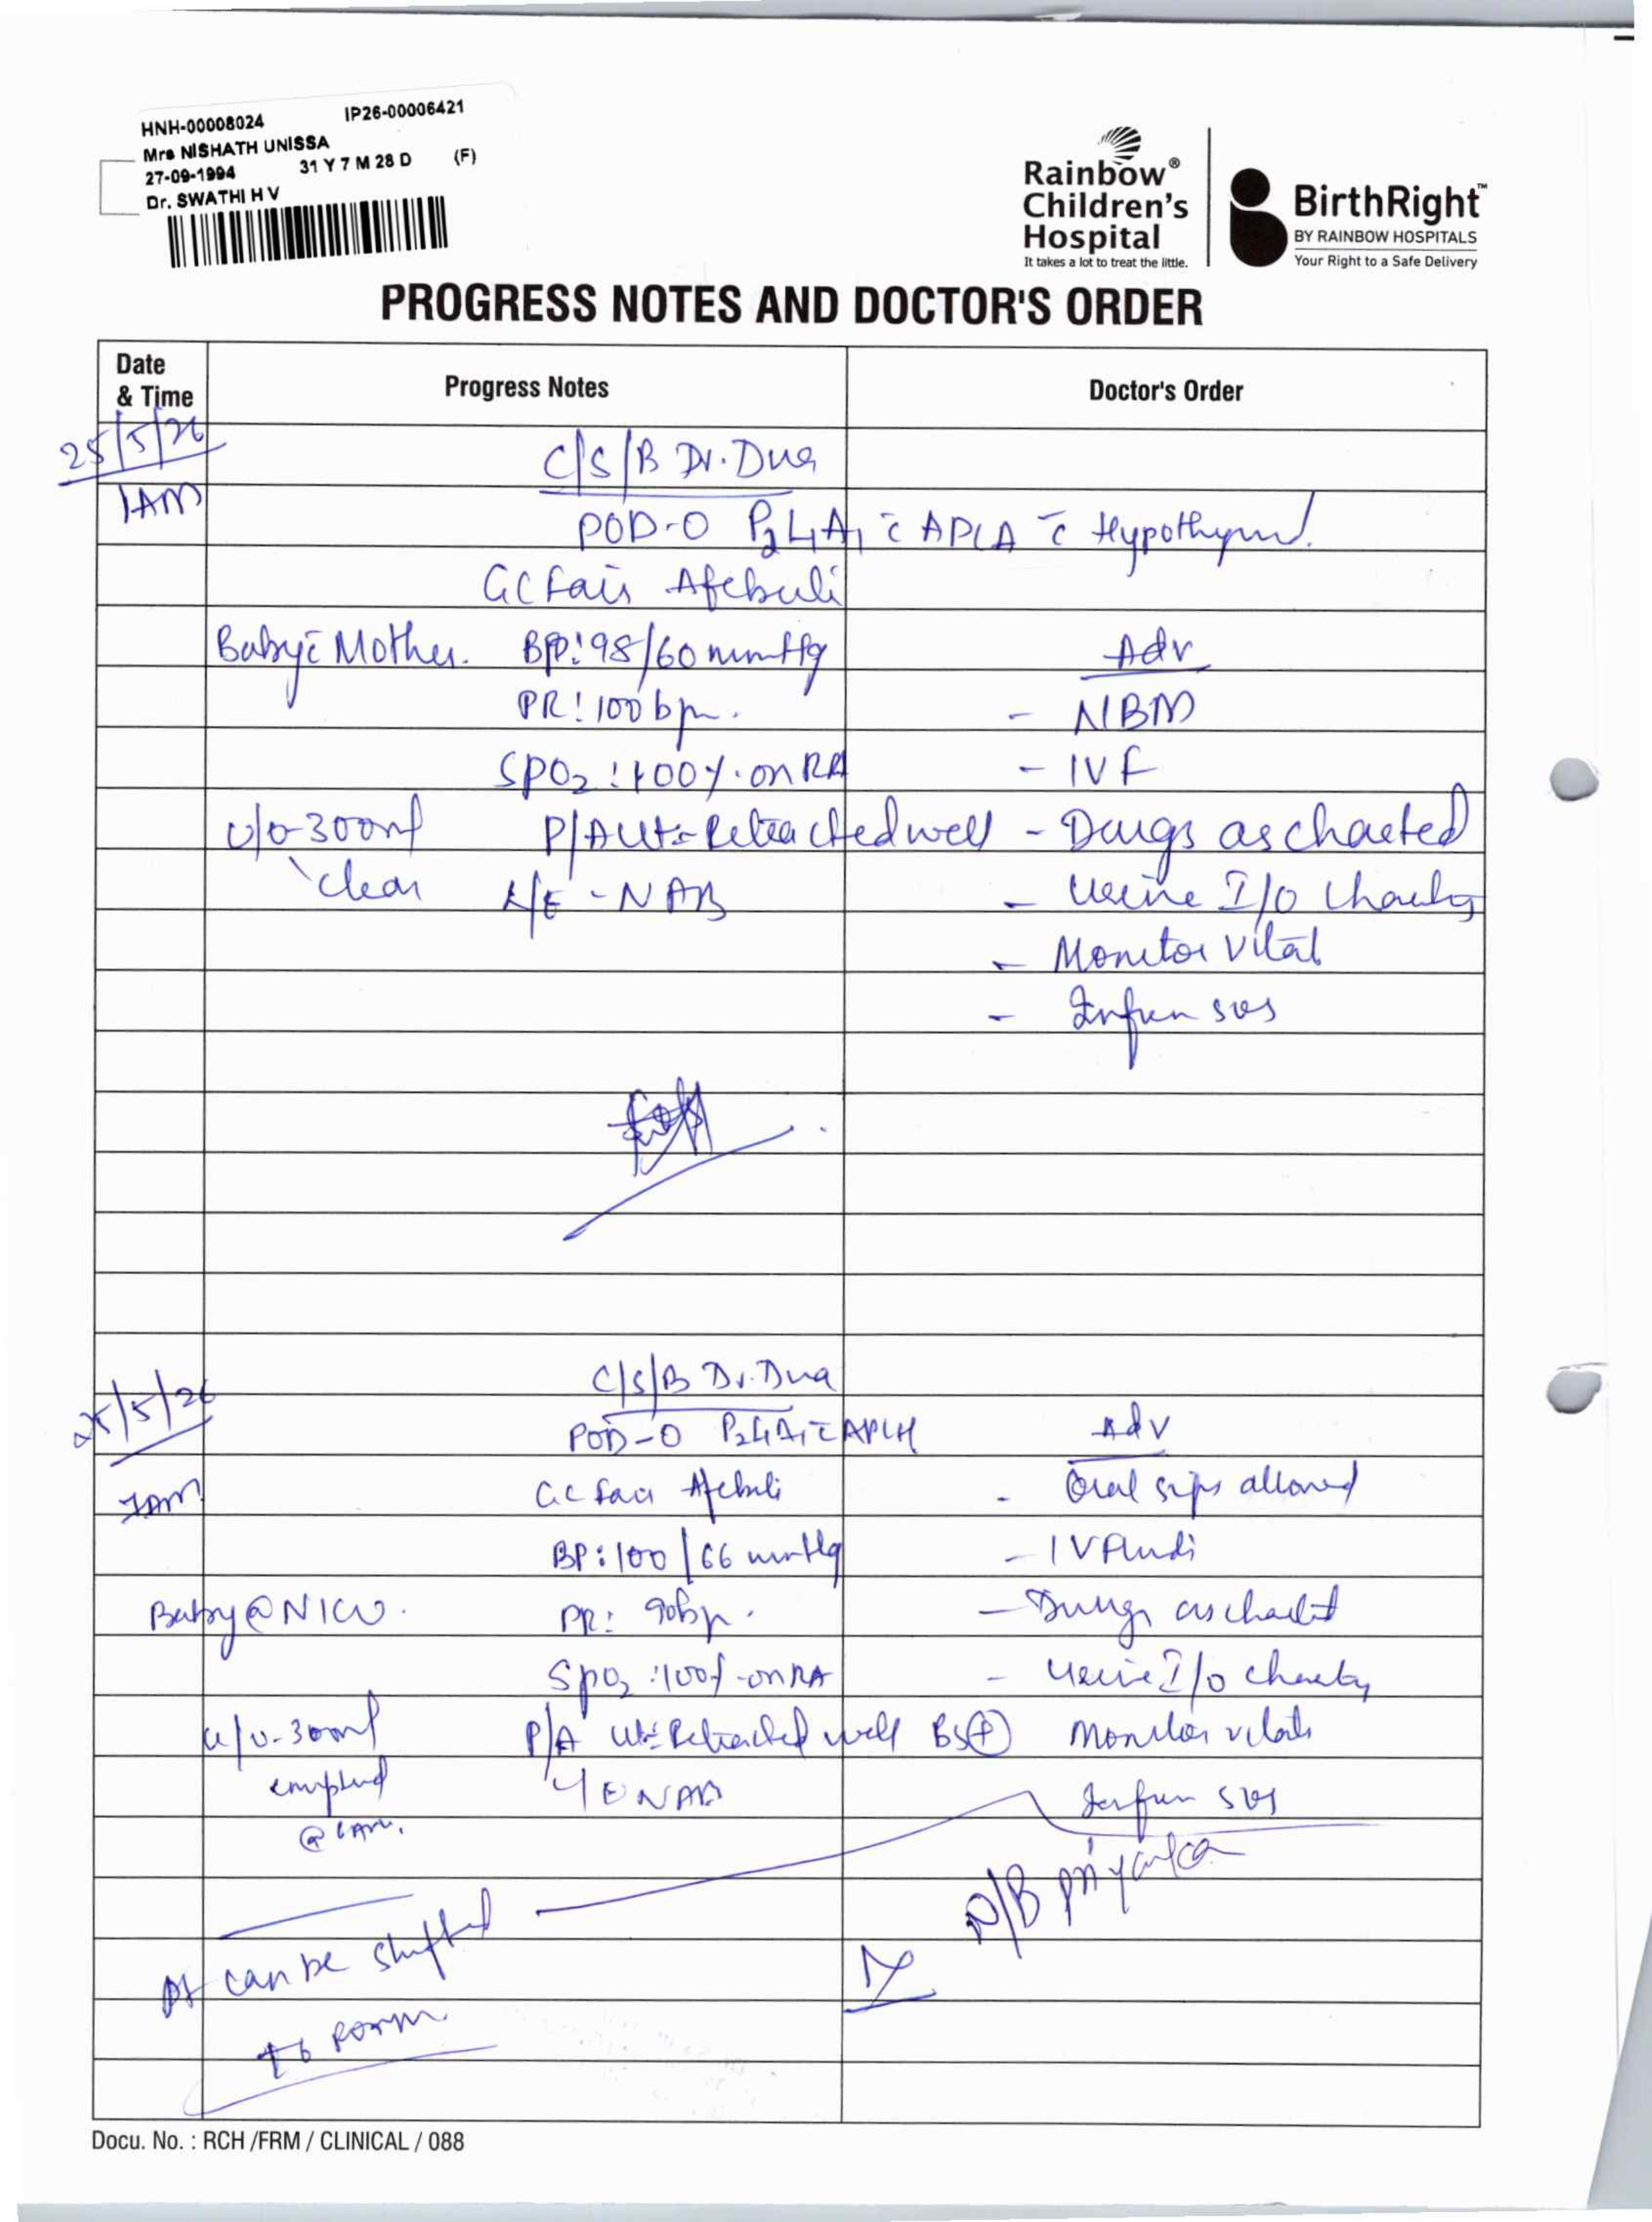 HNH-00008024 IP26-00006421
Mrs NISHATH UNISSA
27-09-1994 31 Y 7 M 28 D (F)
Dr. SWATHI H V
Rainbow® Children's Hospital
It takes a lot to treat the little.
BirthRight™
BY RAINBOW HOSPITALS
Your Right to a Safe Delivery
PROGRESS NOTES AND DOCTOR'S ORDER
Date & Time Progress Notes Doctor's Order
25/5/26 C/S/B Dr. Dua
1AM POD-0 P2L1A1 c̄ APLA c̄
GC Fair Afebrile
Baby c̄ Mother. BP: 98/60 mmHg Adv
PR: 100 bpm. - NBM
SPO2: 100%. on RA - IVF
U/O-300ml P/A Ut- Retracted well - Drugs as charted
clear L/E - NAB - Urine I/O Charting
- Monitor Vital
- Inform SOS
25/5/26 C/S/B Dr. Dua
POD-0 P2L1A1 c̄ APLA Adv
7AM GC Fair Afebrile - Oral sips allowed
BP: 100/66 mmHg - IV Fluids
Baby @ NICU. PR: 90bpm. - Drugs as charted
SpO2: 100% on RA - Urine I/O charting
U/O-300ml P/A Ut- Retracted well BS⊕ Monitor vitals
emptied L/E NAB Inform SOS
@ 6AM.
N/B Priyanka
Pt can be shifted
to Room
Docu. No. : RCH /FRM / CLINICAL / 088